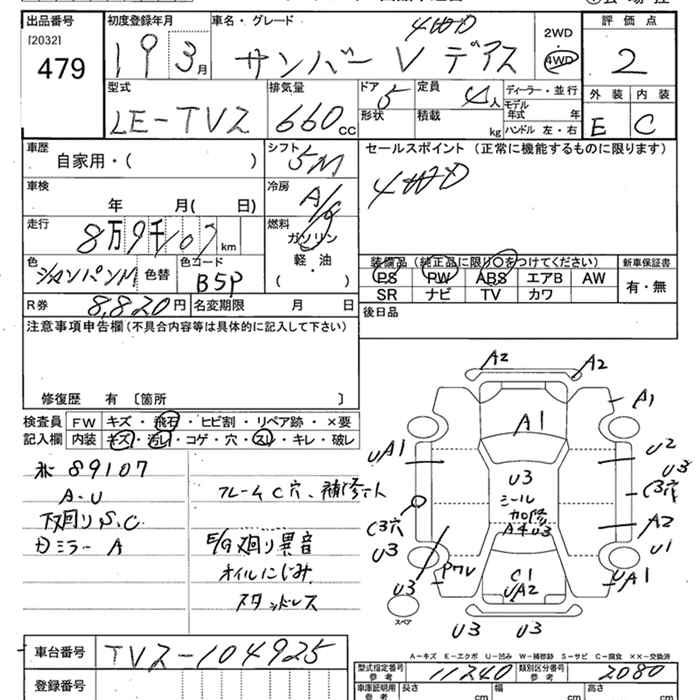 出品番号 初度登録年月 車名・グレード 4WD 評価点
[2032] 479 19 3月 サンバー V デアス 2WD 4WD 2
型式 排気量 ドア 5 定員 4人 ディーラー・並行 外装 内装
LE-TV2 660cc 形状 積載 kg モデル年式 年 E C
ハンドル 左・右
車歴 シフト 5M セールスポイント (正常に機能するものに限ります)
自家用・( )
車検 冷房 A/C 4WD
年 月( 日)
走行 燃料
8万9千107km ガソリン
軽・油
色 色替 色コード ( ) 装備品 (純正品に限り○をつけてください) 新車保証書
シャンパンM B5P PS PW ABS エアB AW 有・無
SR ナビ TV カワ
R券 8,820円 名変期限 月 日 後日品
注意事項申告欄(不具合内容等は具体的に記入して下さい)
修復歴 有 〔箇所 〕
検査員 FW キズ・飛石・ヒビ割・リペア跡・×要
記入欄 内装 キズ・汚レ・コゲ・穴・スレ・キレ・破レ
89107
A.U フレームC穴、補修
下廻りS.C
ミラー A E/G廻り異音
オイルにじみ
スタッドレス
A2 A2
A1 A1
UA1 U2
U3 U3
C3穴 シール C3穴
加修
A4 U3 A2
U3 U1
U3 C1 UA1
UA2
スペア
U3 U3
A-キズ E-エクボ U-凹み W-補修跡 S-サビ C-腐食 ××-交換済
車台番号 TV2-104925 型式指定番号 参考 11240 類別区分番号 参考 2080
登録番号 車庫証明用 参考 長さ cm 幅 cm 高さ cm